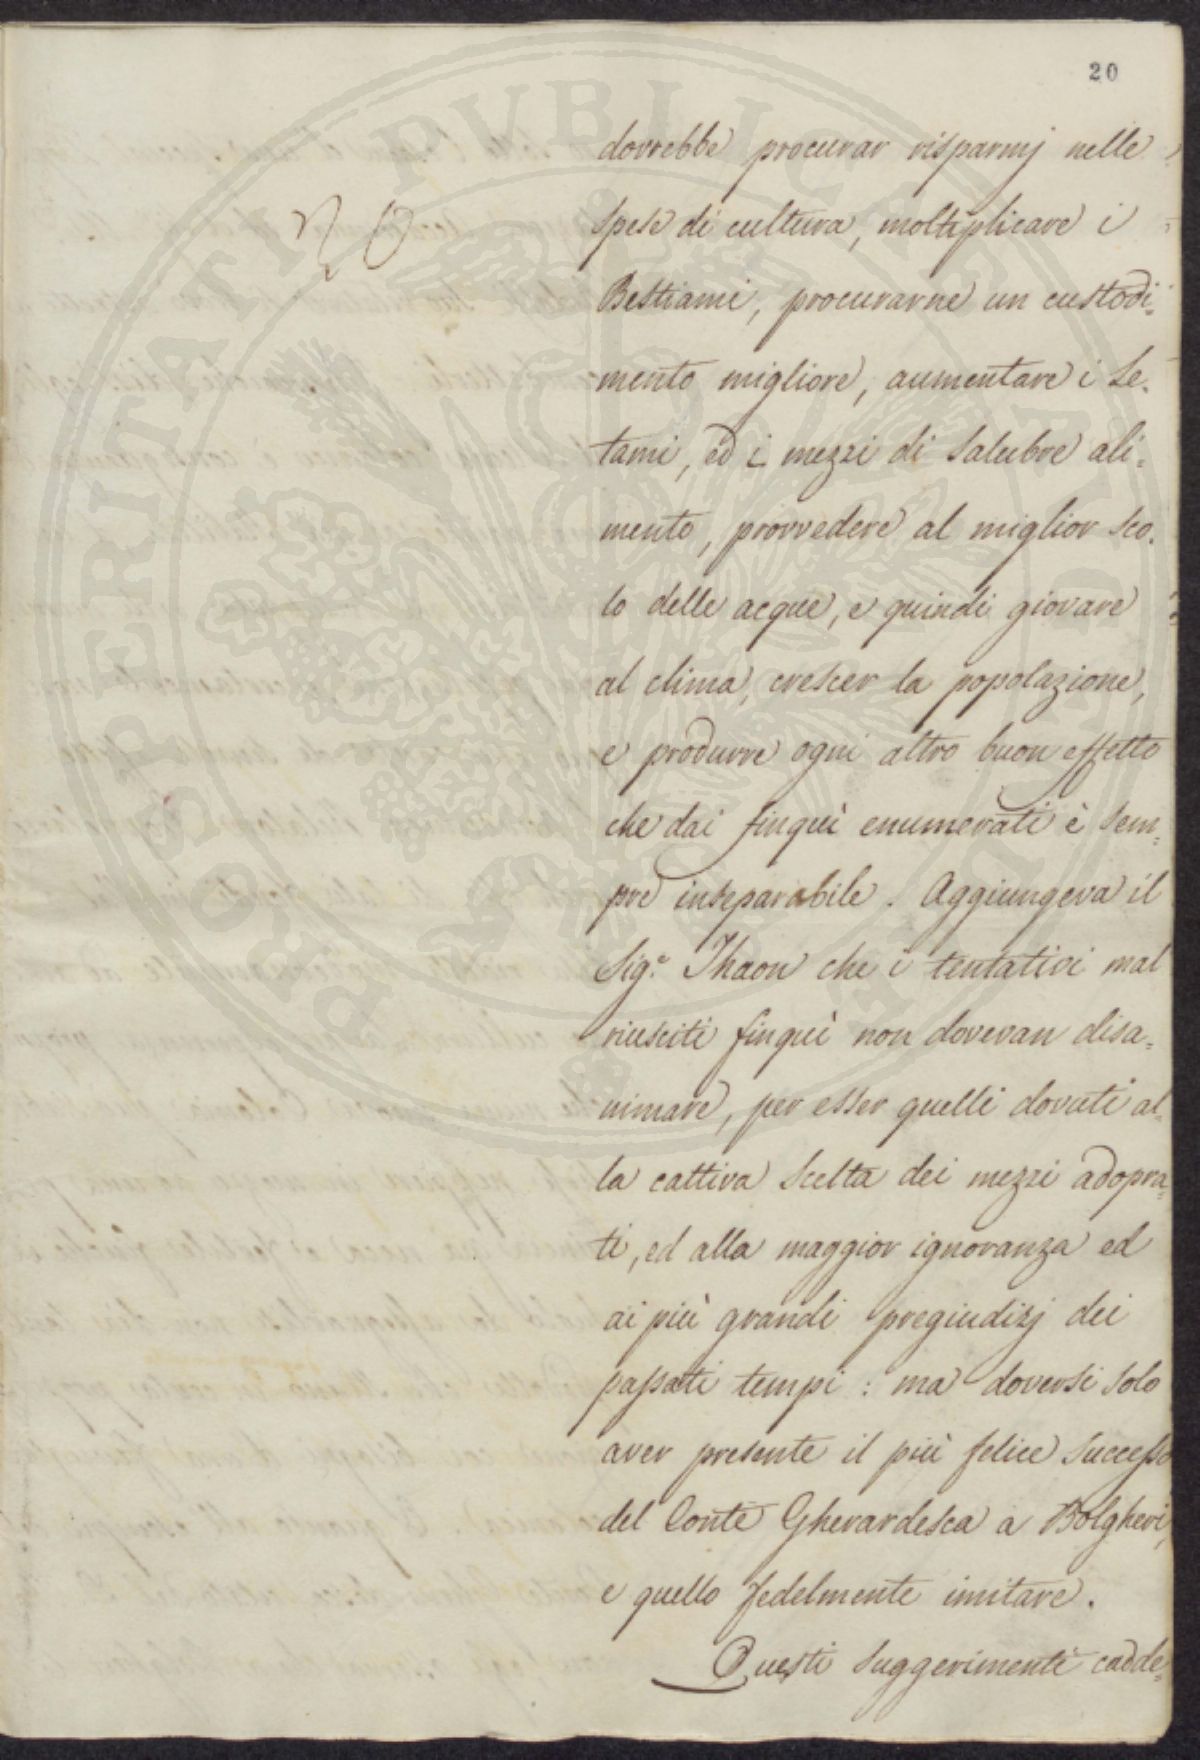 20
20
dovrebbe procurar risparmj nelle
spese di cultura, moltiplicare i
Bestiami, procurarne un custodi=
mento migliore, aumentare i Le=
tami, ed i mezzi di salubre ali=
mento, provvedere al miglior sco=
lo delle acque, e quindi giovare
al clima, crescer la popolazione,
e produrre ogni altro buon effetto
che dai finquì enumerati è sem=
pre inseparabile. Aggiungeva il
Sig.e Thaon che i tentativi mal
riusciti finquì non dovevan disa=
nimare, per esser quelli dovuti al=
la cattiva scelta dei mezzi adopra=
ti, ed alla maggior ignoranza ed
ai più grandi pregiudizj dei
passati tempi: ma doversi solo
aver presente il più felice successo
del Conte Gherardesca a Bolgheri,
e quello fedelmente imitare.
Questi suggerimenti cadde=
PROSPERITATI PUBLICAE